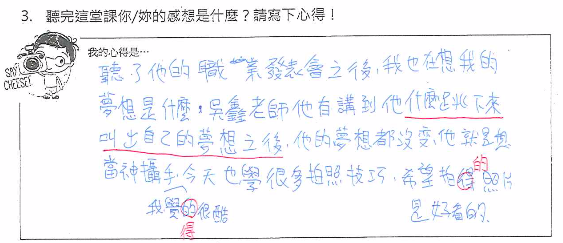 3. 聽完這堂課你/妳的感想是什麼？請寫下心得！
我的心得是…
SAY CHEESE!
聽了他的職業發表會之後，我也在想我的
夢想是什麼，吳鑫老師他有講到他什麼跳下來
叫出自己的夢想之後，他的夢想都沒变，他就是想
當神攝手，今天也學很多拍照技巧，希望拍得照片
的
我覺的很酷
得
是好看的。